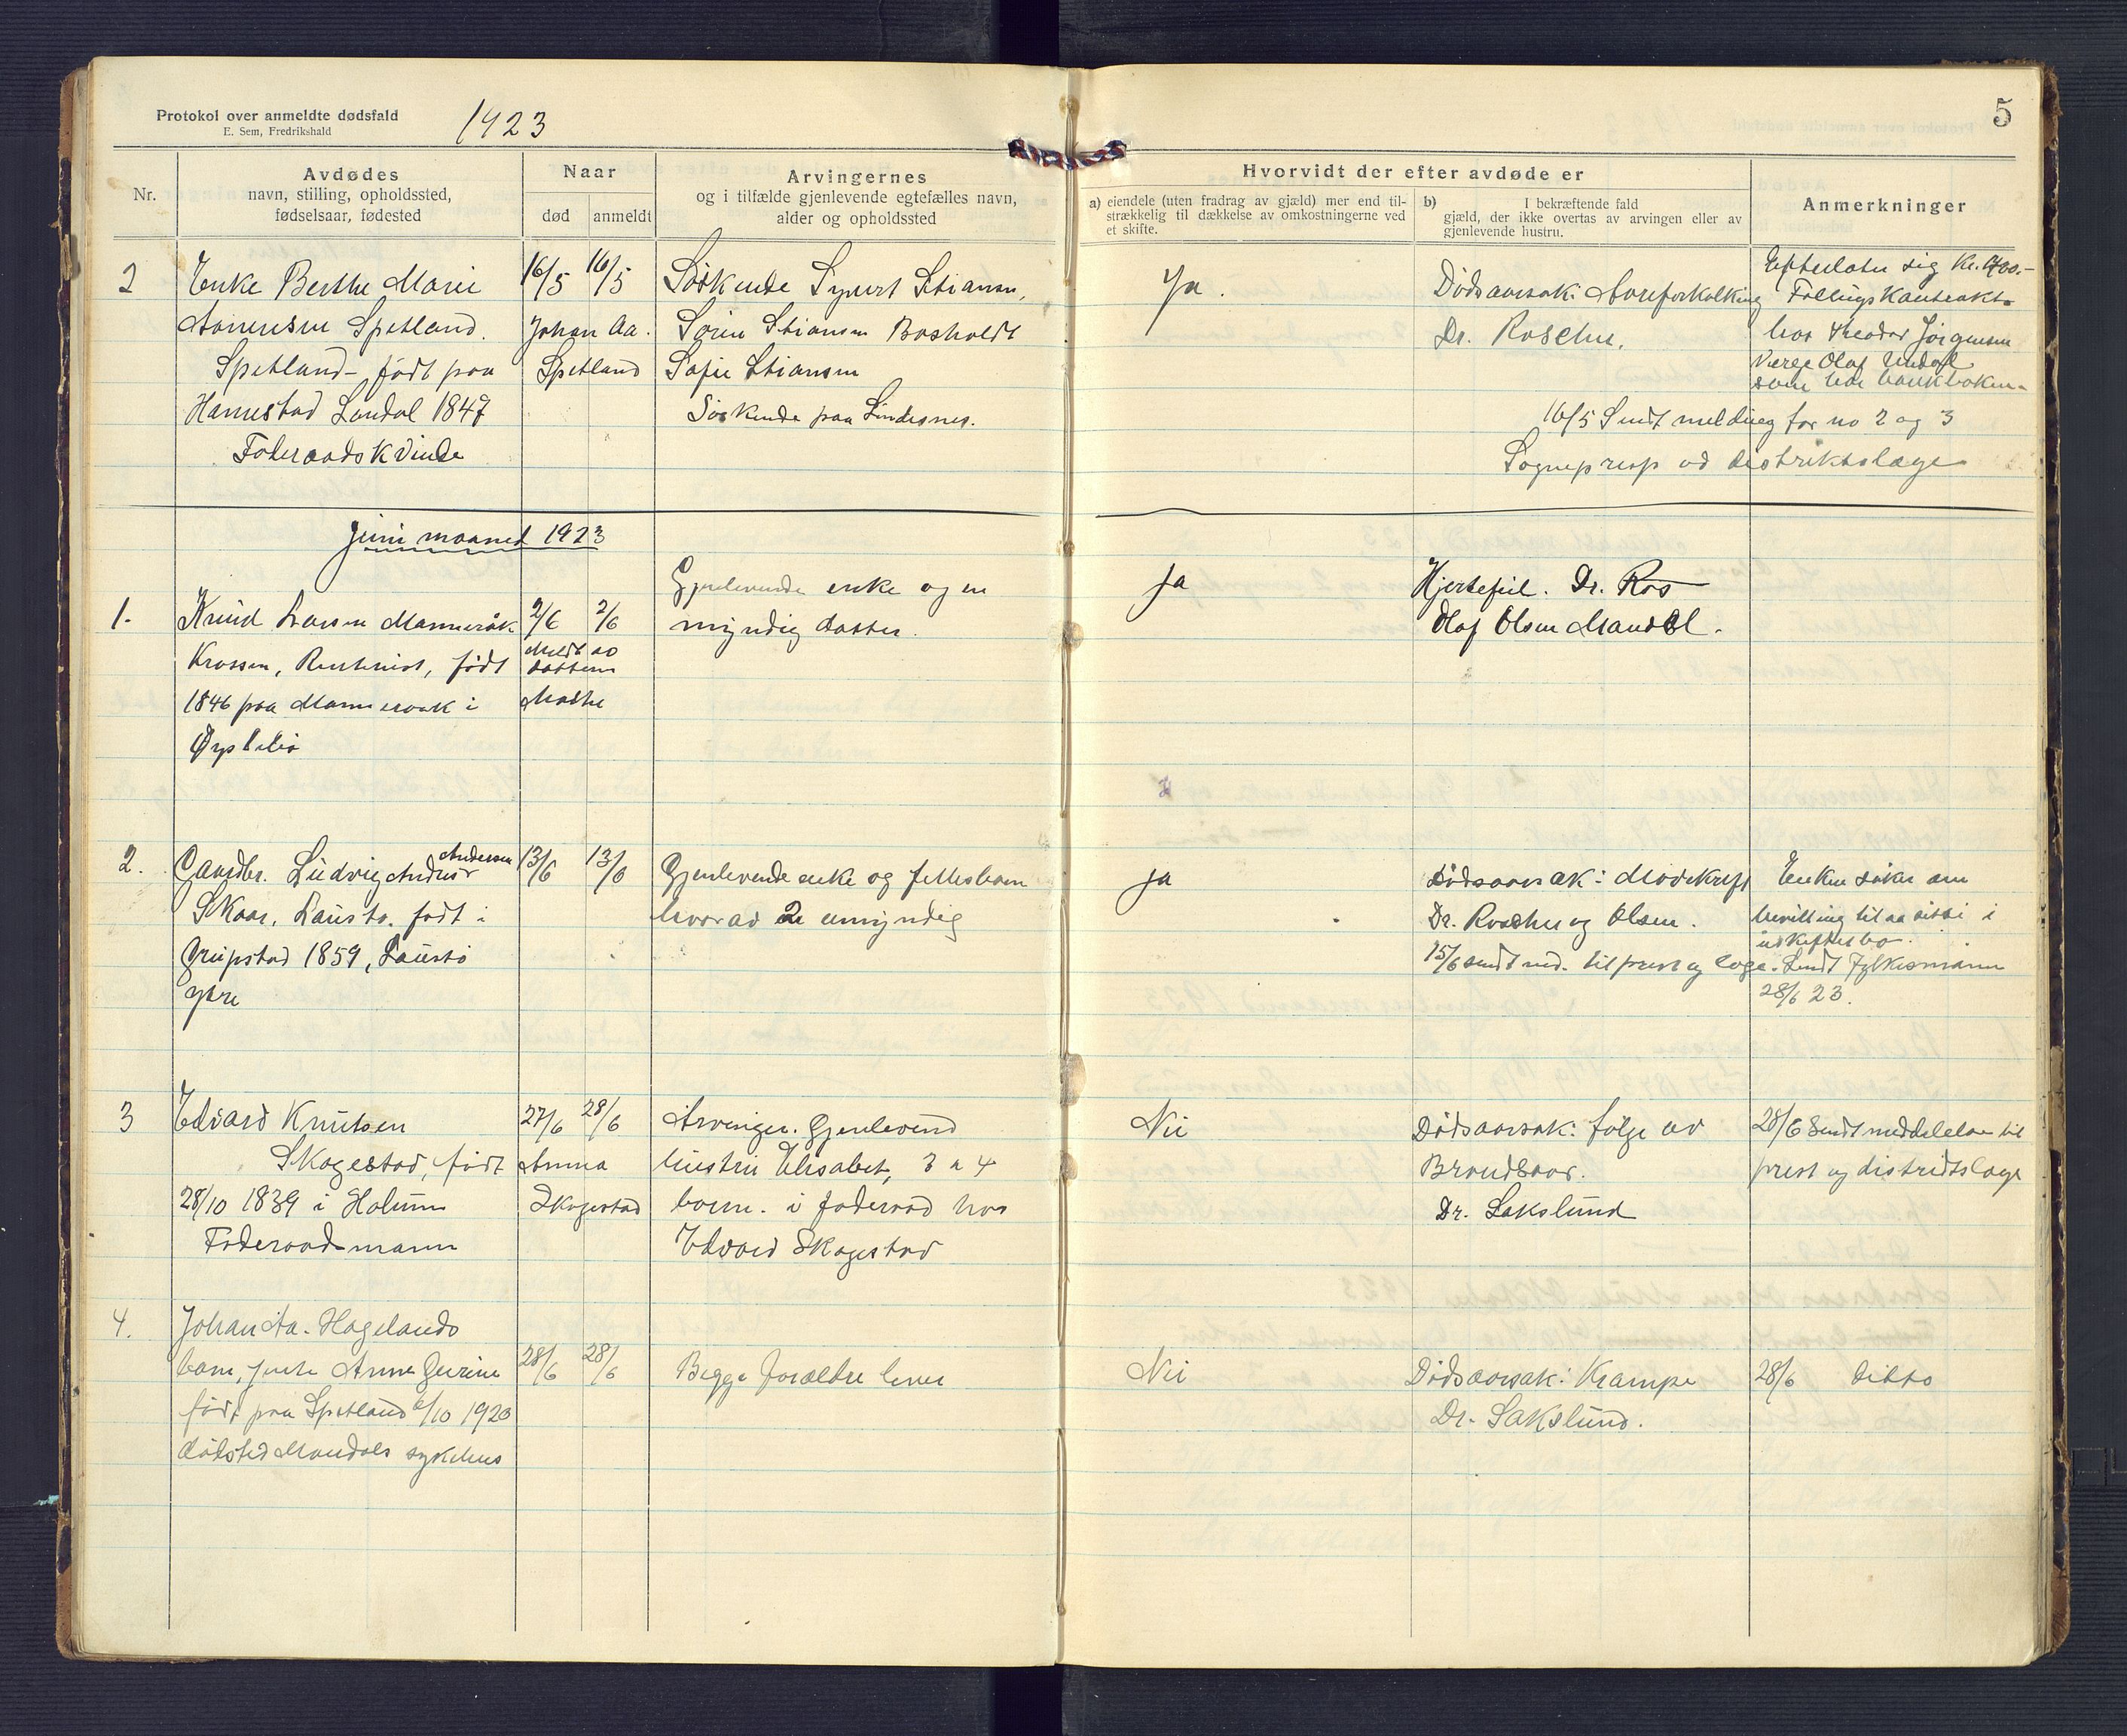 Protokol over anmeldte dødsfald
E. Sem, Fredrikshald
1923
5
Nr.
Avdødes
navn, stilling, opholdssted,
fødselsaar, fødested
Naar
død
anmeldt
Arvingernes
og i tilfælde gjenlevende egtefælles navn,
alder og opholdssted
Hvorvidt der efter avdøde er
a) eiendele (uten fradrag av gjæld) mer end til-
strækkelig til dækkelse av omkostningerne ved
et skifte.
b) I bekræftende fald
gjæld, der ikke overtas av arvingen eller av
gjenlevende hustru.
Anmerkninger
2
Enke Berthe Marie
Spetland.
Spetland - født paa
1847
Foderaadskvinde
16/5 16/5
Johan Aa.
Spetland
Søskende Stiansen,
Stiansen
Sofie Stiansen
Søskende paa Lindesnes.
Ja.
Dødsaarsak: Aareforkalkning
Dr.
Efterlater sig Kr.
hos Theodor Jørgensen
Verge Olaf
som har bankboken
16/5 Sendt melding for no 2 og 3
distriktslæge
Juni maaned 1923
1.
Knud Larsen
Krossen, født
1846 paa i
Øyslebø
2/6 2/6
Meldt av
datteren
Gjenlevende enke og en
myndig datter.
Ja
Hjertefeil. Dr. Ros
Olaf Olsen Mandal.
2.
Ludvig Andersen
Skaar, født i
1859,
13/6 13/6
Gjenlevende enke og fellesbarn
hvorav 2 umyndig
Ja
Dødsaarsak: Mavekreft
Dr. og Olsen.
15/6 sendt med. til prest og læge.
Enken søker om
bevilling til aa sitte i
uskiftet bo.
Sendt Fylkesmann
28/6 23.
3
Edvard Knutsen
Skogestad, født
28/10 1839 i Holum
Foderaadsmann
27/6 28/6
Anna
Skogestad
Arvinger. Gjenlevend
hustru Elisabet, 3 a 4
barn. i foderaad hos
Edvard Skogestad
Nei
Dødsaarsak: følge av
Brandsaar.
Dr. Sakslund
28/6 Sendt meddelelse til
prest og distriktslæge
4.
Johan Aa. Hagelands
barn, Anna
født paa Spetland 6/10 1920
dødsted Mandals sykehus
28/6 28/6
Begge forældre lever
Nei
Dødsaarsak: Krampe
Dr. Sakslund.
28/6 ditto